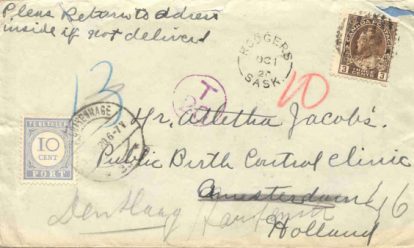 Please Return to address
inside if not delivered
RODGERS
OC 1
SASK.
3
3
13
T
10
TE BETALEN
10
CENT
PORT
Mr. Atletta Jacobs.
Public Birth Control Clinic
Amsterdam
Den Haag
Holland